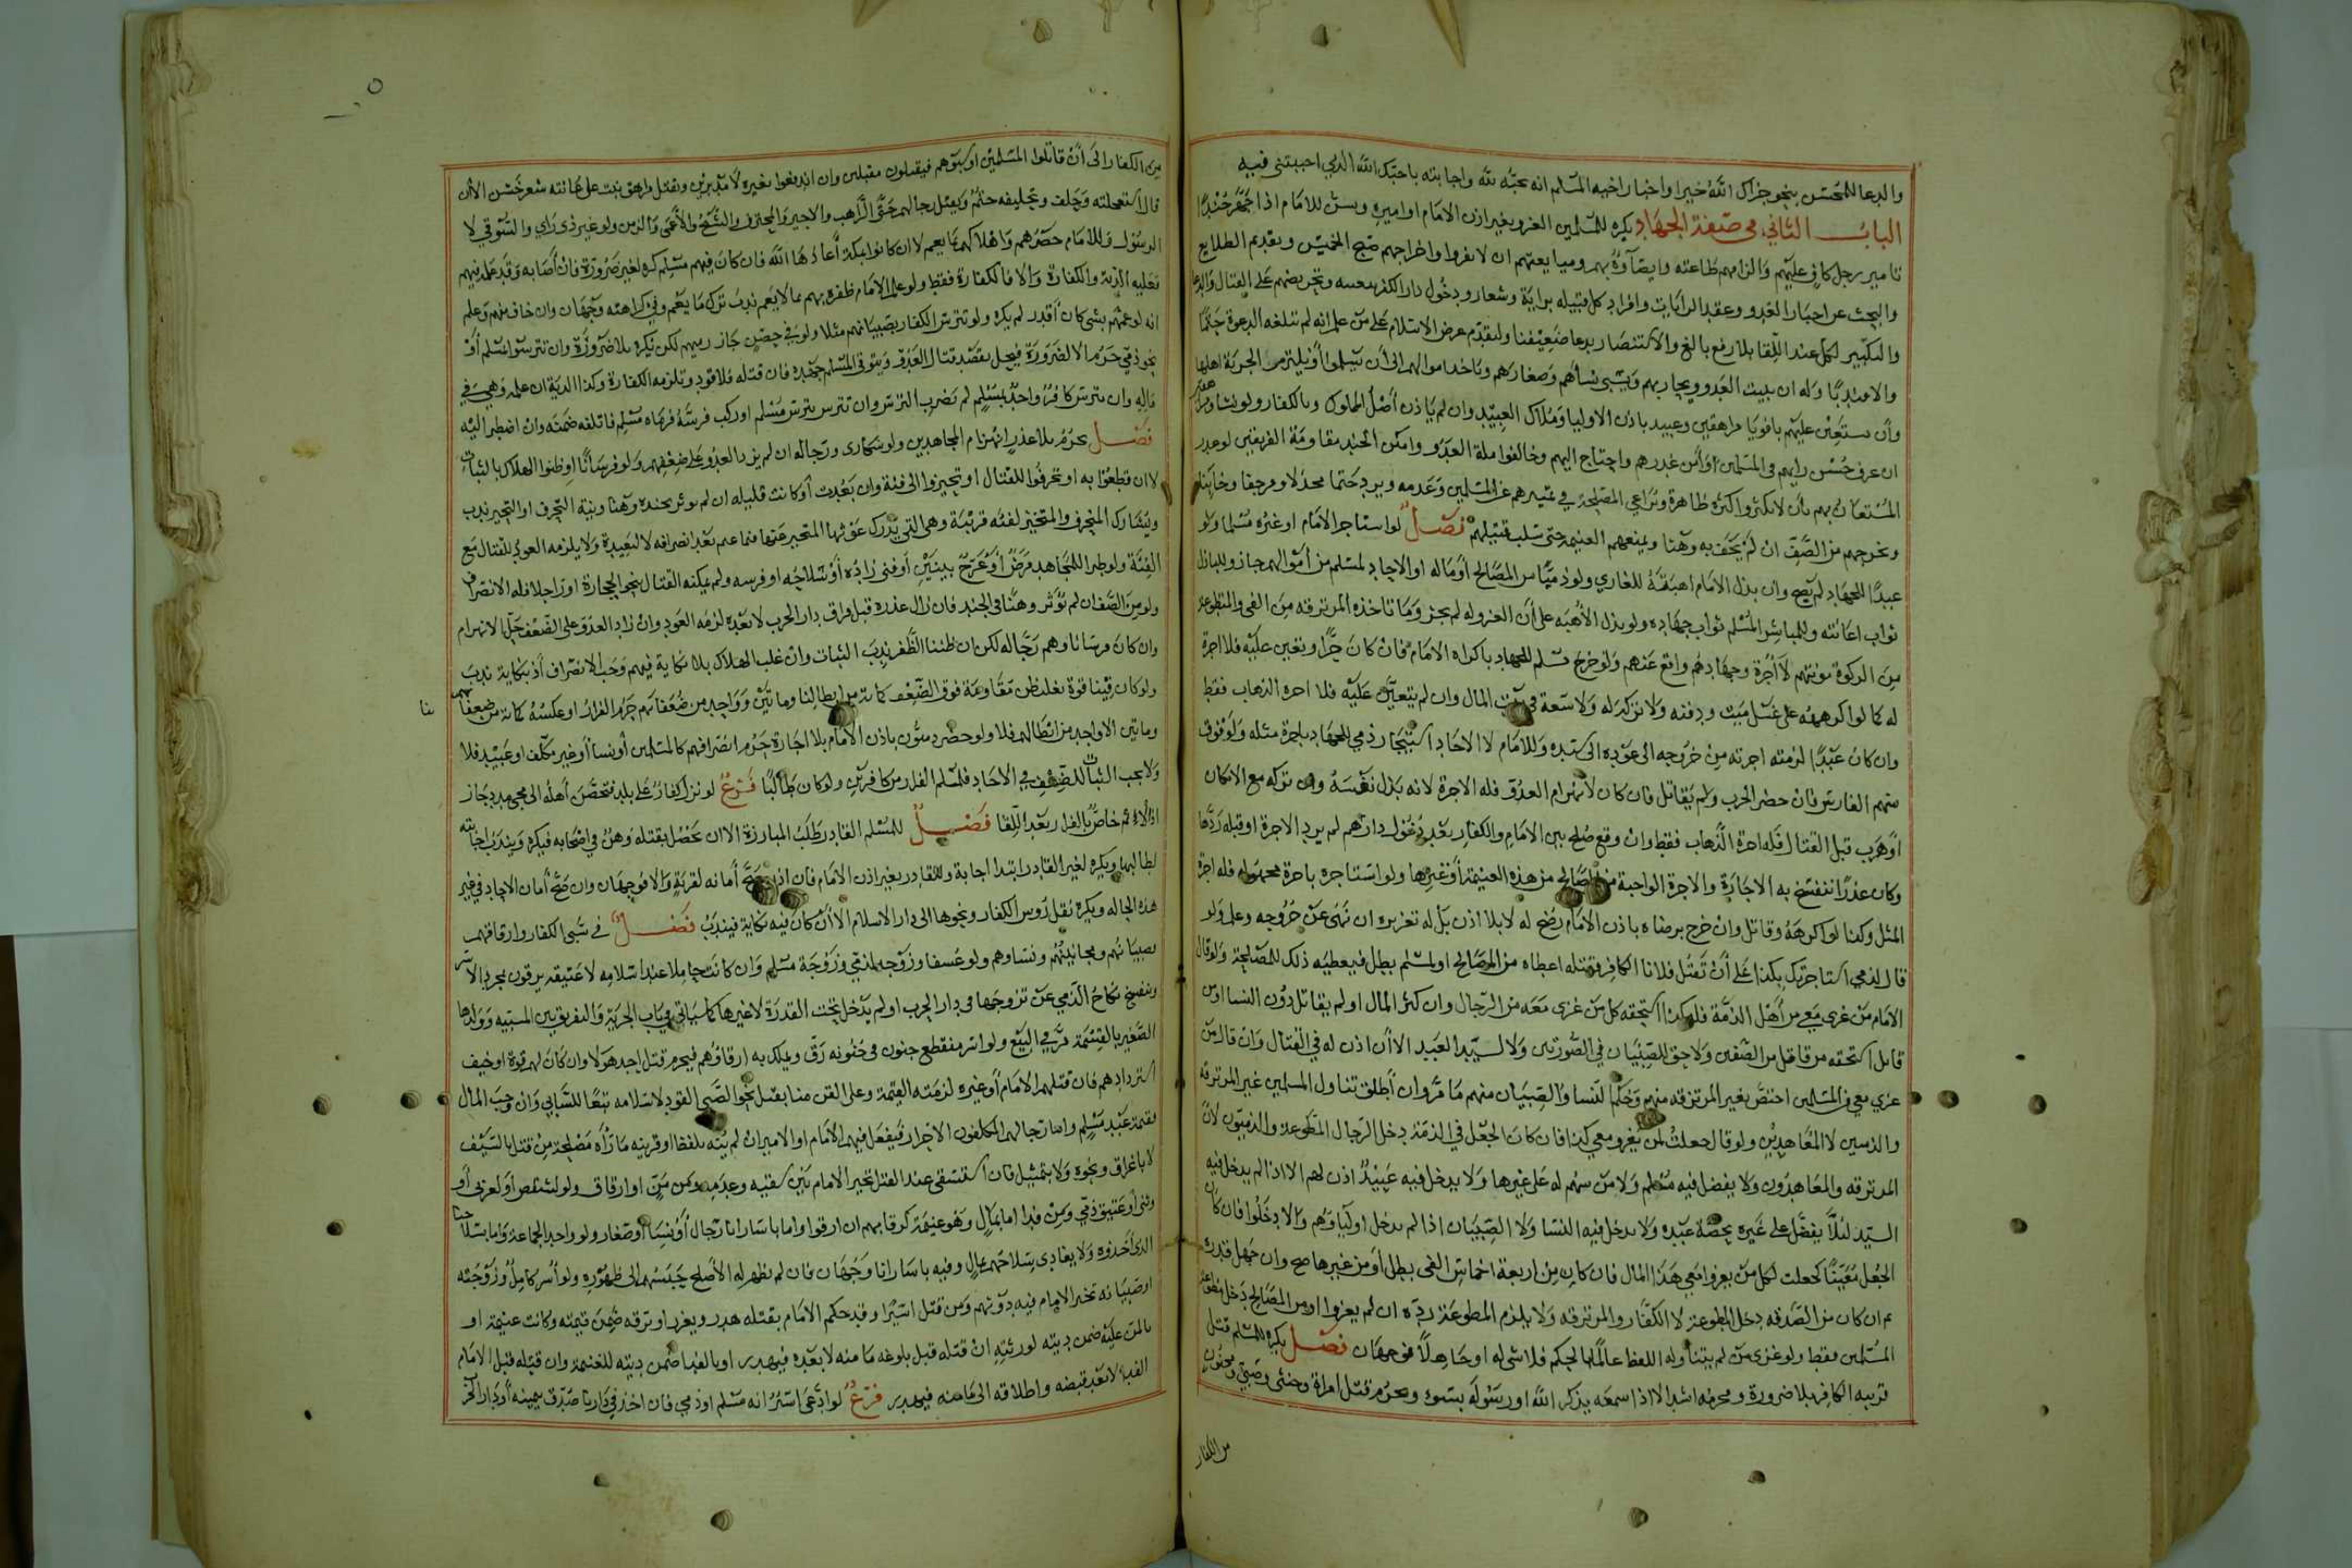 والدعا للمحسن بنحو جزاك الله خيرا واخبار اخيه المسلم انه يحبه لله واجابته باحبك الله الذي احببتني فيه
الباب الثاني في صفة الجهاد يكره للمسلمين الغزو بغير اذن الامام او اميره ويسن للامام اذا جهز جندا
تامير رجل كاف عليهم والزامهم طاعته وايصاؤه بهم ومبايعتهم ان لا يفروا واخراجهم صبح الخميس وتقديم الطلايع
والبحث عن اخبار العدو وعقد الرايات وافراد كل قبيله براية وشعار ودخول دار الكفر بنفسه وتحريضهم على القتال والدعا
والتكبير لكل عند اللقا بلا رفع بالغ والاستنصار بدعا ضعيفنا وليقدم عرض الاسلام على من علم انه لم تبلغه الدعوة حتما
والا ندبا وله ان يبيت العدو ويحاربهم ويسبي نسأهم وصغارهم وياخذ اموالهم الى أن يسلموا أو يلتزم الجزية اهلها
وأن يستعين عليهم باقويا مراهقين وعبيد باذن الاوليا وملاك العبيد وان لم ياذن أصل المملوك وبالكفار ولو نسا
ان عرف حسن رايهم في المسلمين او أمن غدرهم واحتاج اليهم وخالفوا ملة العدو وامكن الجند مقاومة الفريقين لو غدر
المستعان بهم بأن لا يكثروا كثرة ظاهرة ويراعي المصلحة في تمييزهم عن المسلمين وعدمه ويرد حتما مخذلا ومرجفا وخاينا
ويخرجهم من الصف ان لم يخف به وهنا ويمنعهم الغنيمة حتى سلب قتيلهم فصل لو استاجر الامام او غيره مسلما ولو
عبدا للجهاد لم يصح وان بذل الامام اهبة للغازي ولو ذميا من المصالح أو ماله او الاحاد لمسلم من أموالهم جاز وللباذل
ثواب اعانته وللمباشر المسلم ثواب جهاده ولو بذل الأهبة على أن الغزو له لم يجز وما تاخذه المرتزقه من الفي والمتطوعة
من الزكوة مونتهم لا أجرة وجهادهم واقع عنهم ولو خرج مسلم للجهاد باكراه الامام فان كان حرا وتعين عليه فلا اجرة
له كما لو اكرهه على غسل ميت ودفنه ولا تركة له ولا سعة في بيت المال وان لم يتعين عليه فله اجرة الذهاب فقط
وان كان عبدا لزمته اجرته من خروجه الى عوده الى سيده وللامام لا الاحاد استيجار ذمي للجهاد باجرة مثله ولو فوق
سهم الفارس فان حضر الحرب ولم يقاتل فان كان لانهزام العدو فله الاجرة لانه بذل نفسه وان تركه مع الامكان
أو هرب قبل القتال فله اجرة الذهاب فقط وان وقع صلح بين الامام والكفار بعد دخول دارهم لم يرد الاجرة او قبله ردها
وكان عذرا تنفسخ به الاجارة والاجرة الواجبة من المصالح من هذه الغنيمة أو غيرها ولو استاجره باجرة مجهولة فله اجرة
المثل وكذا لو اكرهه وقاتل وان خرج برضاه باذن الامام رضخ له لا بلا اذن بل له تعزيره ان نهى عن خروجه وعلم ولو
قال لذمي استاجرتك بكذا على أن تقتل فلانا الكافر فقتله اعطاه من المصالح او لمسلم بطل فيعطيه ذلك للمصلحة ولو قال
الامام من غزى معي من أهل الذمة فله كذا استحقه كل من غزى معه من الرجال وان كثر المال او لم يقاتل دون النسا او من
قاتل استحقه من قاتل من الصفين ولا حق للصبيان في الصورتين ولا لسيد العبيد الا أن اذن له في القتال وان قال من
غزى معي من المسلمين اختص بغير المرتزقه منهم وحكم النسا والصبيان منهم ما مر وان أطلق تناول المسلمين غير المرتزقه
والذميين لا المعاهدين ولو قال جعلت لمن يغزو معي كذا فان كان الجعل في الذمة دخل الرجال المطوعة والذميون لا
المرتزقه والمعاهدون ولا يفضل فيه مسلم ولا من سهم له على غيرها ولا يدخل فيه عبيد اذن لهم الا اذا لم يدخل فيه
السيد ليلا يفضل على غيره بحصة عبده ولا يدخل فيه النسا ولا الصبيان اذا لم يدخل اولياؤهم والا دخلوا فان كان
الجعل معينا كجعلت لكل من يغزوا معي هذا المال فان كان من اربعة اخماس الفي بطل أو من غيرها صح وان جهل قدره
ثم ان كان من الصدقه دخل المطوعة لا الكفار والمرتزقه ولا يلزم المطوعة رده ان لم يغزوا او من المصالح دخل
المسلمين فقط ولو غزى من لم يتناوله اللفظ عالما بالحكم فلا شي له او جاهلا فوجهان فصل يكره للمسلم قتل
قريبه الكافر بلا ضرورة ومحرمه اشد الا اذا سمعه يذكر الله او رسوله بسوء ويحرم قتل امراة وخنثى وصبي ومجنون
من الكفار
من الكفار الى أن قاتلوا المسلمين او سبوهم فيقتلون مقبلين وان اندفعوا بغيره لا مدبرين ويقتل مراهق نبت على عانته شعر خشن الا أن
قال استعجلته وحلف وتحليفه حتم ويقتل رجالهم حتى الراهب والاجير والمحترف والشيخ والأعمى والزمن ولو غير ذي راي والسوقي لا
الرسول وللامام حصرهم واهلاكهم بما يعم لا ان كانوا بمكة أعاذها الله فان كان فيهم مسلم كره لغير ضرورة فان أصابه وقد علمه فيهم
فعليه الدية والكفارة والا فالكفارة فقط ولو علم الامام ظفره بهم بما لا يعم ندب ترك ما يعم وفي كراهته وجهان وان خاف منهم وعلم
انه لو عمهم بشي كان أقدر لم يكره ولو تترس الكفار بصبيانهم مثلا ولو في حصن جاز رميهم لكن يكره بلا ضرورة وان تترسوا بمسلم أو
نحو ذمي حرم الا لضرورة فيحل بقصد قتال العدو ويتوقى المسلم جهده فان قتله فلا قود وتلزمه الكفارة وكذا الدية ان علمه وهي في
ماله وان تترس كافر واحد بمسلم لم نضرب الترس وان تترس بترس مسلم او ركب فرسه فرماه مسلم فاتلفه ضمنه وان اضطر اليه
فصل يحرم بلا عذر انهزام المجاهدين ولو سكارى ورجاله ان لم يزد العدو على ضعفهم ولو فرسانا او ظنوا الهلاك بالثبات
لا ان قطعوا به او تحرفوا للقتال او تحيزوا الى فئة وان بعدت أو كانت قليله ان لم يوثر بجنده وهنا ونية التحرف او التحيز ندب
ويشارك المتحرف والمتحيز لفئه قريبة وهي التي يدرك غوثها المتحيز عنها فيما غنم بعد انصرافه لا لبعيدة ولا يلزمه العود للقتال مع
الفئة ولو طرا للمجاهد مرض أو عرج بينين أو فنى زاده أو سلاحه او فرسه ولم يمكنه القتال بنحو الحجارة او راجلا فله الانصراف
ولو من الصف ان لم يؤثر وهنا في الجند فان زال عذره قبل فراق دار الحرب لا بعده لزمه العود وان زاد العدو على الضعف حل الانهزام
وان كان فرسانا وهم رجاله لكن ان ظننا الظفر ندب الثبات وان غلب الهلاك بلا نكاية فيهم وجب الانصراف أو بنكاية ندب
ولو كان فينا قوة يغلب ظن مقاومة فوق الضعف كمائة من ابطالنا ومائتين وواحد من ضعفائهم حرم الفرار او عكسه كمائة من ضعفائنا
ومائتي الا واحد من ابطالهم فلا ولو حضر ذميون باذن الامام بلا اجارة حرم انصرافهم كالمسلمين أو نسا أو غير مكلف او عبيد فلا
ولا يجب الثبات للضعف في الاحاد فلمسلم الفرار من كافرين ولو كان طالبا فرع لو نزل كفار على بلد فتحصن أهله الى مجي مدد جاز
اذ الاثم خاص بالفرار بعد اللقا فصل للمسلم القادر طلب المبارزة الا ان يحصل بقتله وهن في اصحابه فيكره ويندب اجابته
لطالبها ويكره لغير القادر ابتدا اجابة وللقادر بغير اذن الامام فان اذن صح أمانه لقرنه والا فوجهان وان صح أمان الاحاد في غير
هذه الحاله ويكره نقل روس الكفار ونحوها الى دار الاسلام الا أن كان فيه نكاية فيندب فصل في سبي الكفار وارقاقهم
صبيانهم ومجانينهم ونساوهم ولو عسفا وزوجه لذمي وزوجة مسلم وان كانت حاملا عند اسلامه لا عتيقه يرقون بمجرد الاسر
وينفسخ نكاح الذمي عن تزوجها في دار الحرب او لم يدخل تحت القدرة لا غيرها كما سياتي في باب الجزية والتفريق بين المسبيه وولدها
الصغير بالقسمة مر في البيع ولو اسر منقطع جنون في جنونه رق ويملك به ارقاؤهم فيحرم قتل احد هولا وان كان لهم قوة او خيف
استردادهم فان قتلهم الامام أو غيره لزمته القيمة وعلى القن منا بقتل نحو الصبي القود لاسلامه تبعا للسابي وان وجب المال
لا باغراق ونحوه ولا بتمثيل فان استسقى عند القتل تخير الامام بين سقيه وعدمه ومن من او ارقاق ولو لشخص أو لعربي أو
وثني أو عتيق ذمي ومن فدا اما بمال وهو غنيمة كرقابهم ان ارقوا واما باسارانا رجال أو نسا او صغار ولو واحد الجماعة واما بسلاحنا
الذي أخذوه ولا يفادي بسلاحهم بمال وفيه باسارانا وجهان فان لم يظهر له الأصلح حبسهم الى ظهوره ولو أسر كامل وزوجته
او صبيانه تخير الامام فيه دونهم ومن قتل اسيرا وقد حكم الامام بقتله هدر ويعزر او برقه ضمن قيمته وكانت غنيمة او
بالمن عليه ضمن ديته لورثته ان قتله قبل بلوغه مامنه لا بعده فيهدر او بالفدا ضمن ديته للغنيمة وان قتله قبل الامام
الفدا لا بعد قبضه واطلاقه الى مامنه فيهدر فرع لو ادعى اسير انه مسلم او ذمي فان اخذ في دارنا صدق بيمينه أو دار الحرب